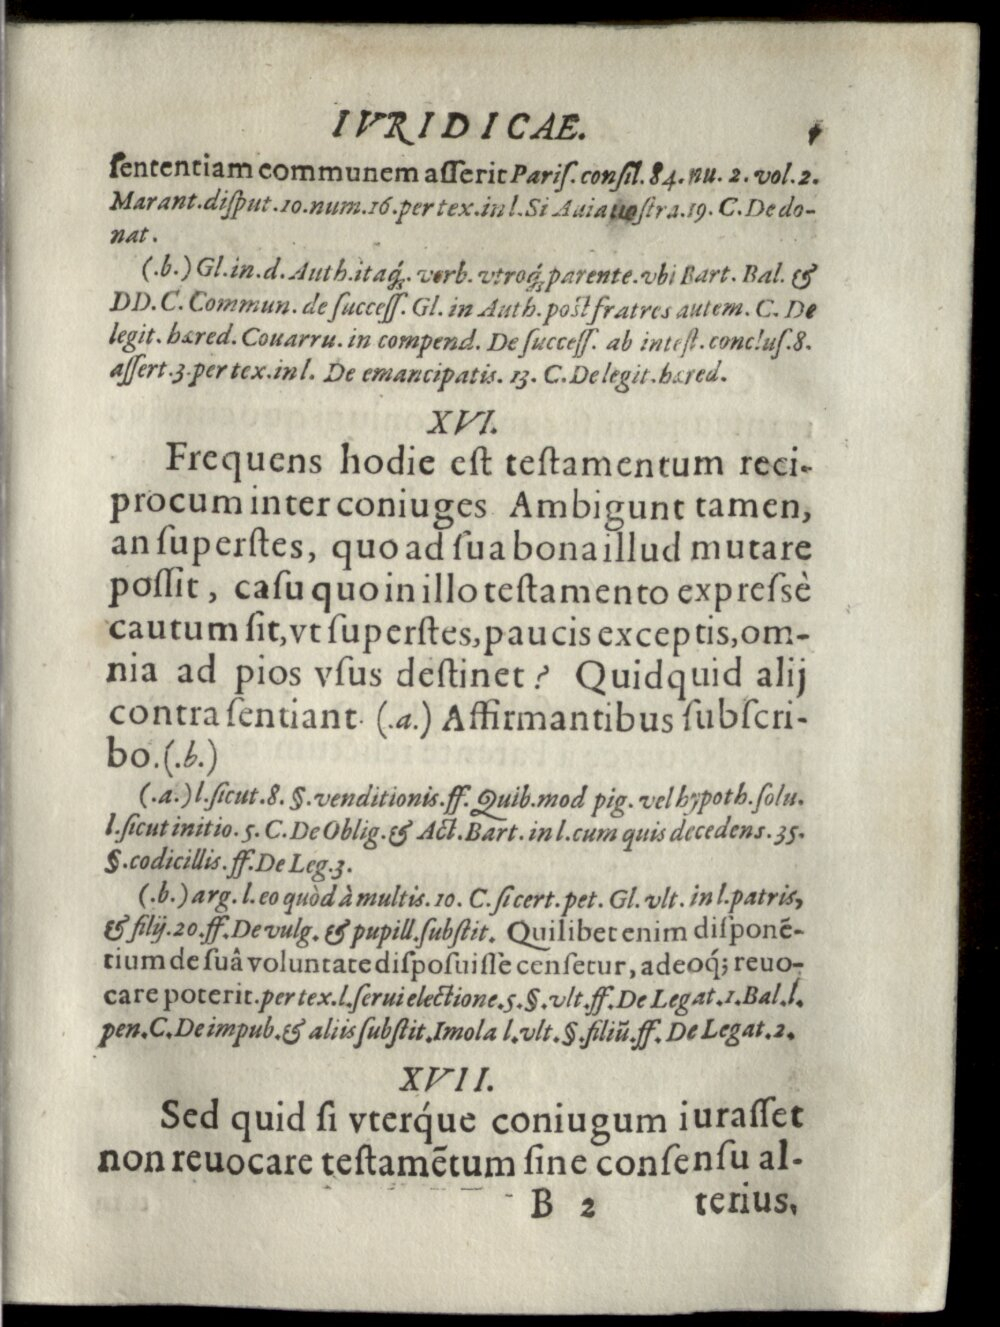 IVRIDICAE.
ſententiam communem aſſerit Pariſ. conſil. 84. nu. 2. vol. 2.
Marant. diſput. 10. num. 16. per tex. in l. Si Auia noſtra. 19. C. De do-
nat.
(.b.) Gl. in. d. Auth. itaq́. verb. vtroq́ parente. vbi Bart. Bal. &
DD. C. Commun. de ſucceſſ. Gl. in Auth. poſt fratres autem. C. De
legit. hæred. Couarru. in compend. De ſucceſſ. ab inteſt. concluſ. 8.
aſſert. 3. per tex. in l. De emancipatis. 13. C. De legit. hæred.
XVI.
Frequens hodie eſt teſtamentum reci-
procum inter coniuges Ambigunt tamen,
an ſuperſtes, quo ad ſua bona illud mutare
poſſit, caſu quo in illo teſtamento expreſsè
cautum ſit, vt ſuperſtes, paucis exceptis, om-
nia ad pios vſus deſtinet? Quidquid alij
contra ſentiant. (.a.) Affirmantibus ſubſcri-
bo. (.b.)
(.a.) l. ſicut. 8. §. venditionis. ff. Quib. mod pig. vel hypoth. ſolu.
l. ſicut initio. 5. C. De Oblig. & Act. Bart. in l. cum quis decedens. 35.
§. codicillis. ff. De Leg. 3.
(.b.) arg. l. eo quòd à multis. 10. C. ſi cert. pet. Gl. vlt. in l. patris,
& filij. 20. ff. De vulg. & pupill. ſubſtit. Quilibet enim diſponẽ-
tium de ſuâ voluntate diſpoſuiſſe cenſetur, adeoq́; reuo-
care poterit. per tex. l. ſerui electione. 5. §. vlt. ff. De Legat. 1. Bal. l.
pen. C. De impub. & aliis ſubſtit. Imola l. vlt. §. filiũ. ff. De Legat. 2.
XVII.
Sed quid ſi vterq́ue coniugum iuraſſet
non reuocare teſtamẽtum ſine conſenſu al-
B 2 terius,